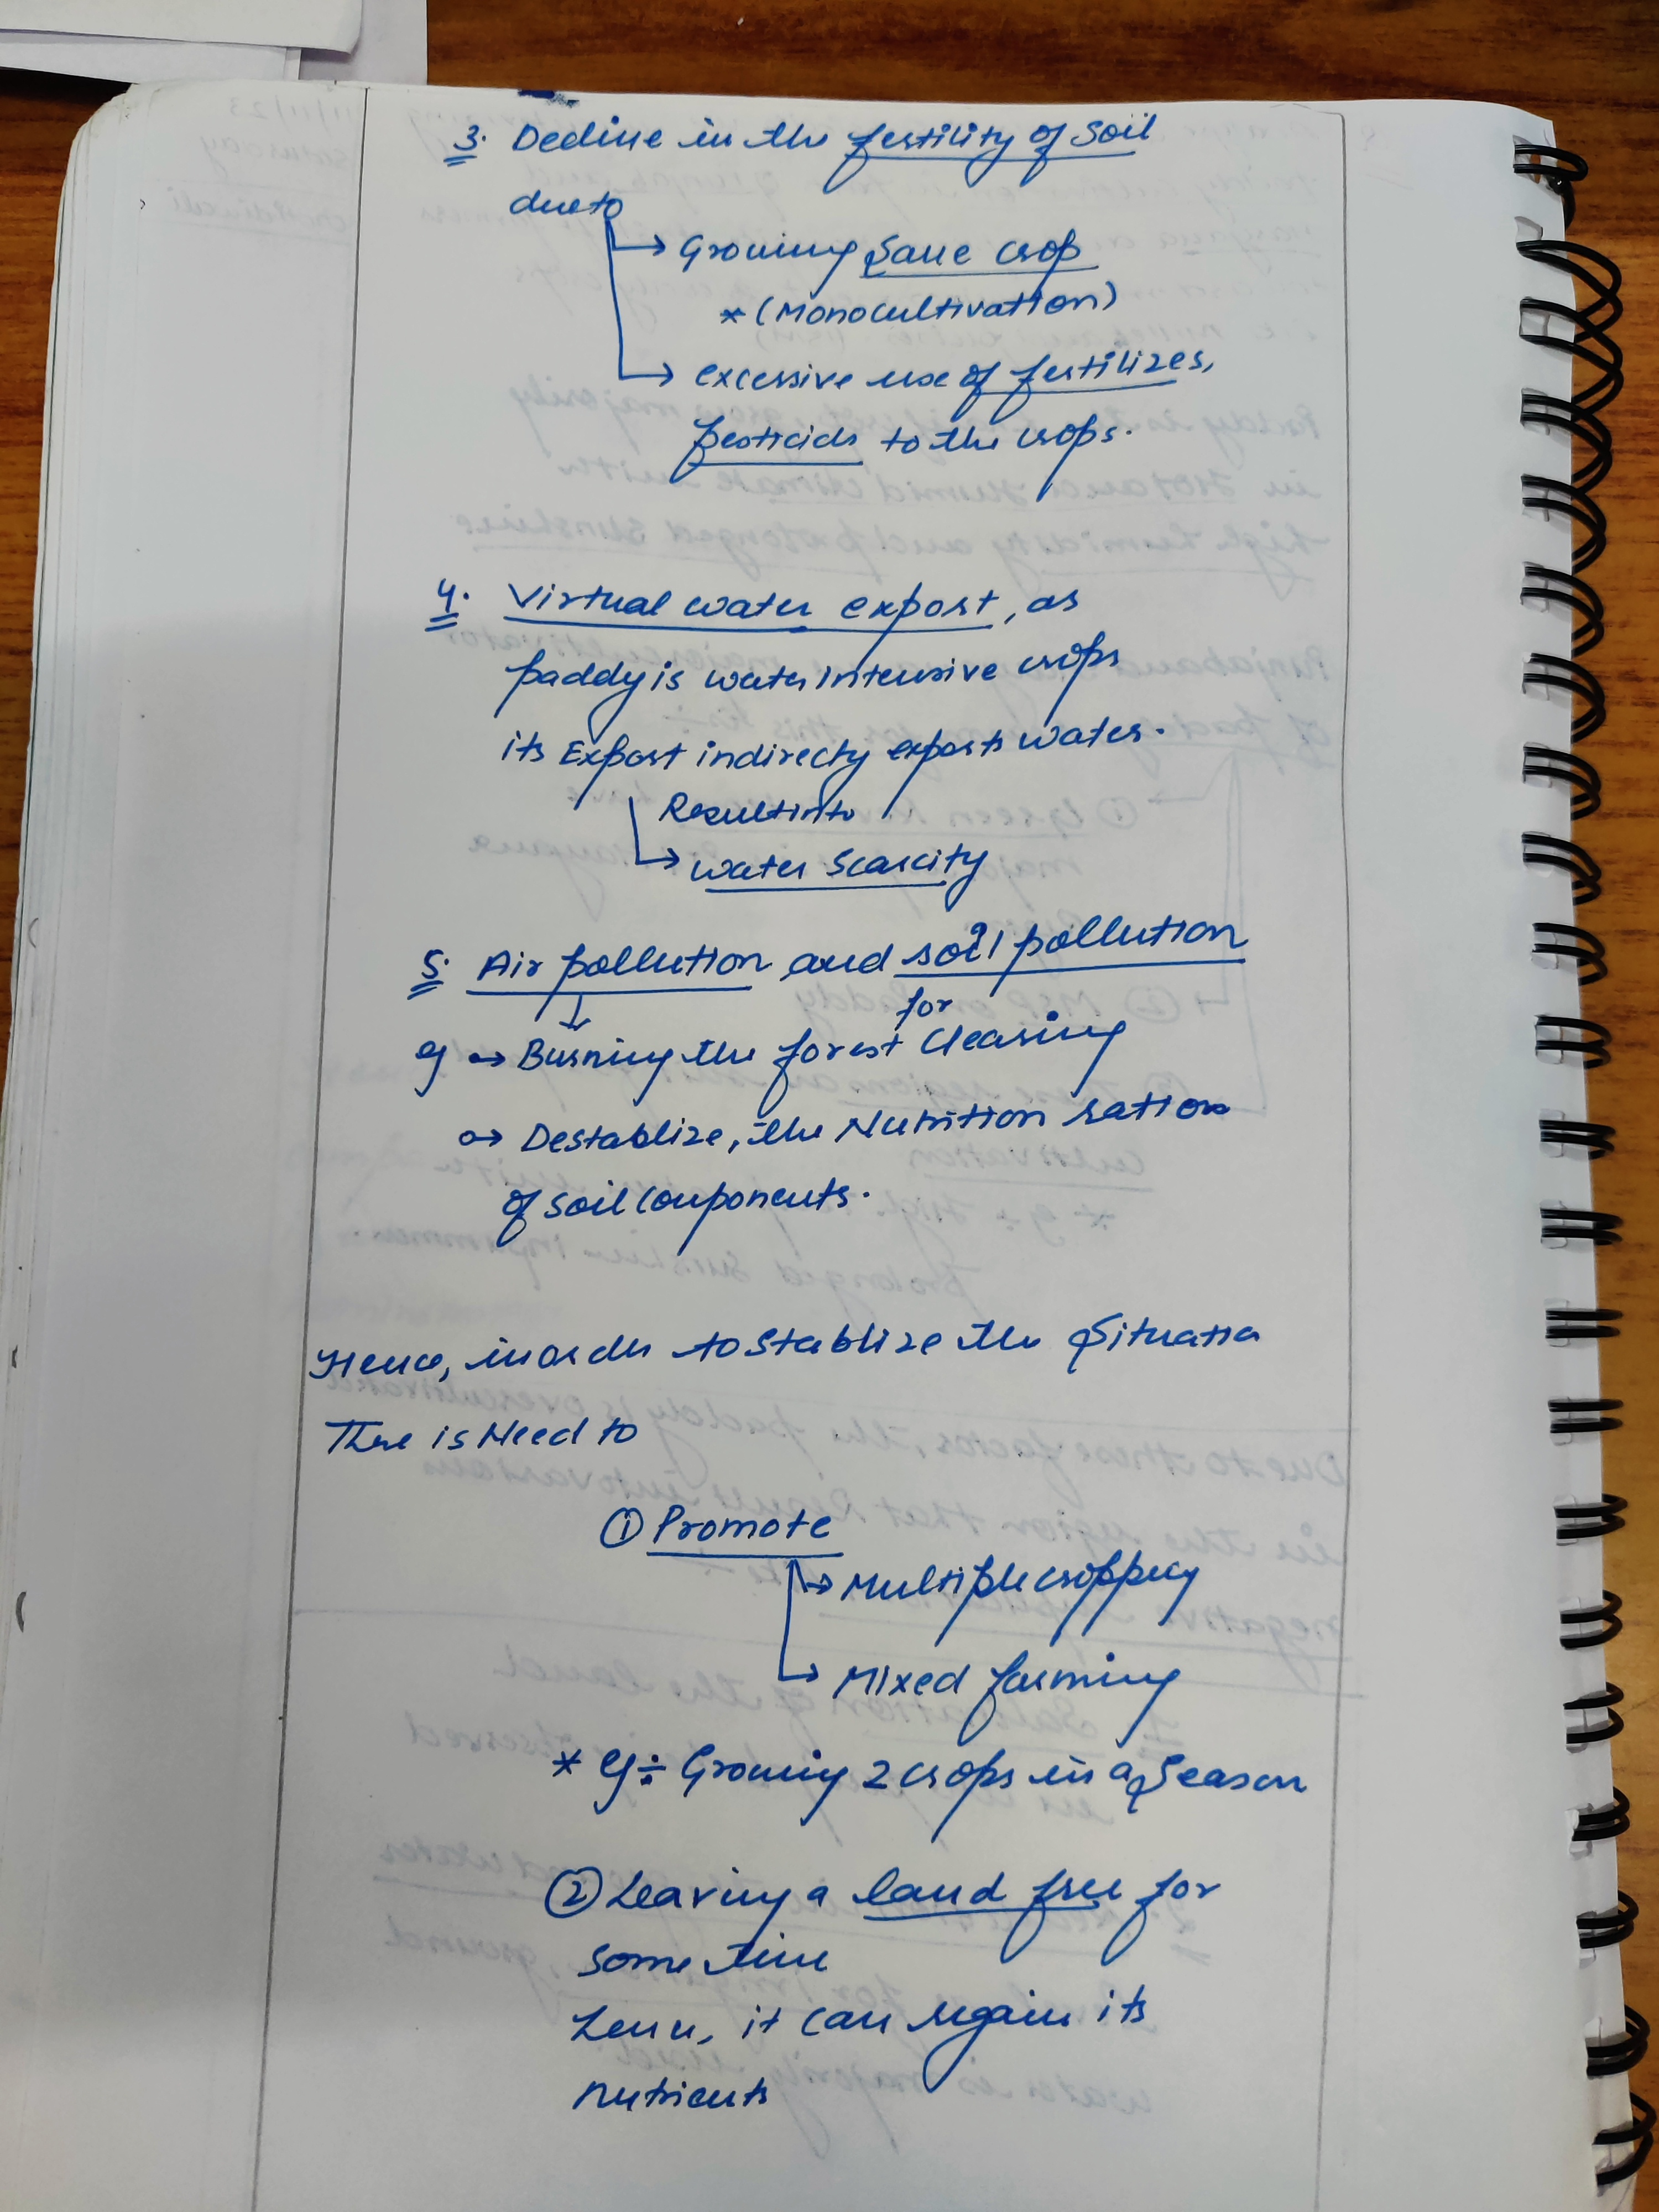 3. Decline in the fertility of Soil
due to
→ Growing Same crop
* (Monocultivation)
→ excessive use of fertilizes,
pesticids to the crops.
4. Virtual water export, as
paddy is water intensive crops
its Export indirecty exports water.
Result into
→ water Scarcity
5. Air pollution and soil pollution
for
eg → Burning the forest clearing
→ Destablize, the Nutrition ration
of soil components.
Hence, in order to Stablize the Situation
There is Need to
① Promote
→ Multiple cropping
→ Mixed farming
* eg ÷ Growing 2 crops in a Season
② Leaving a land free for
some time
Hence, it can regain its
nutrients